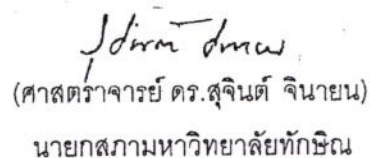 (ศาสตราจารย์ ดร.สุจินต์ จินายน)
นายกสภามหาวิทยาลัยทักษิณ